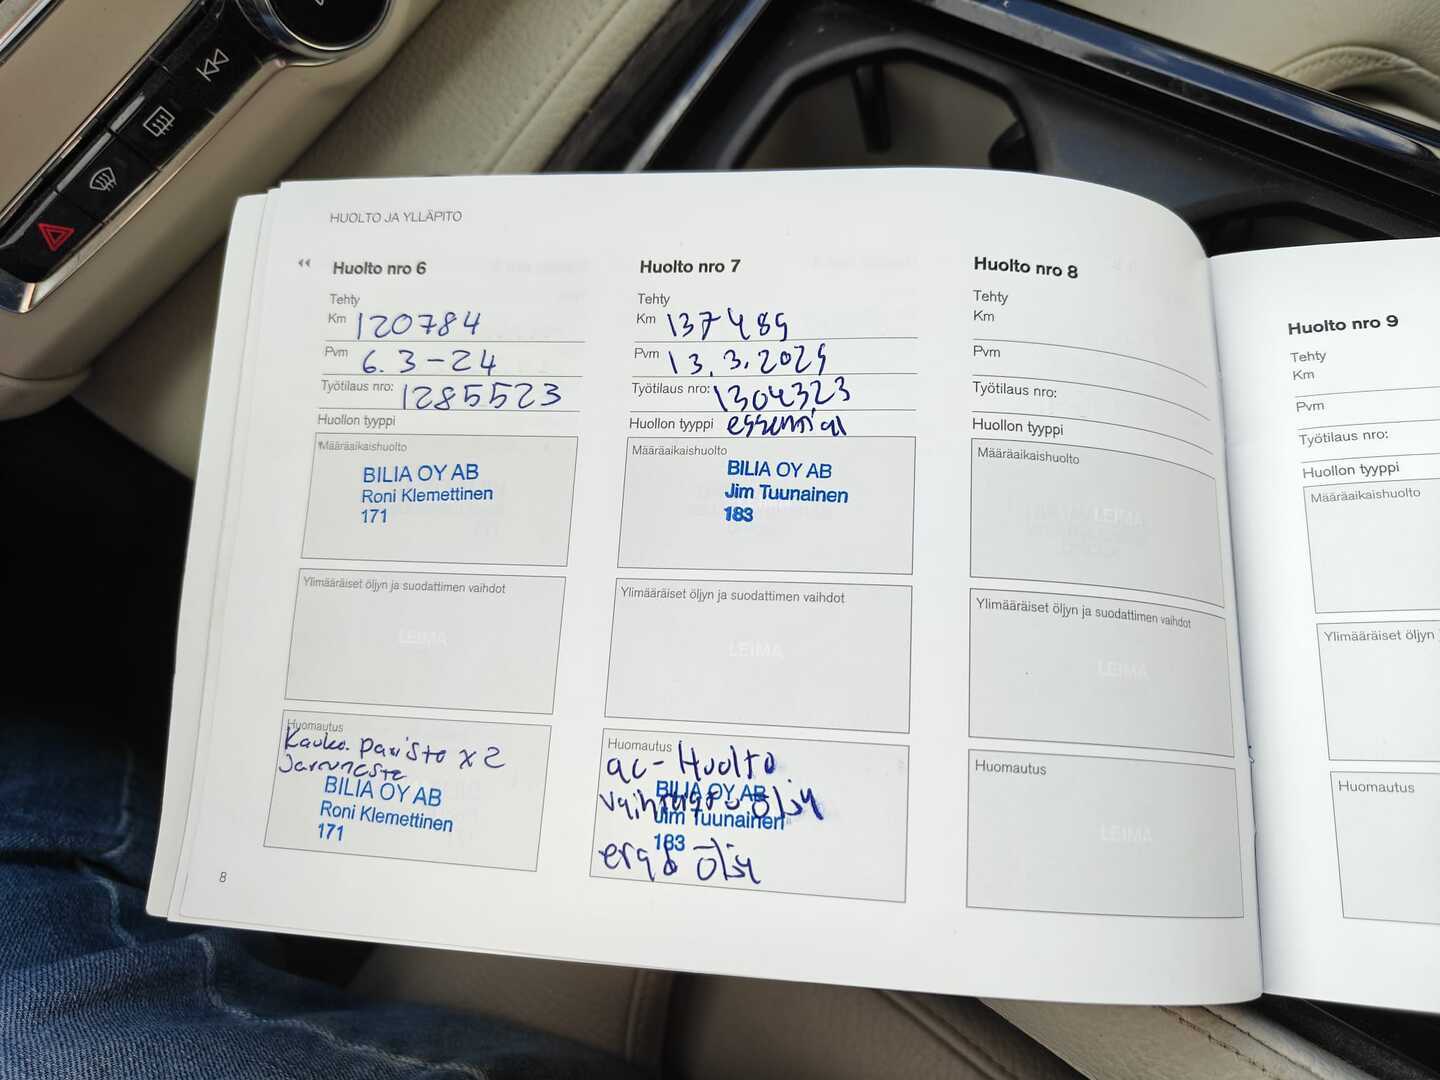 HUOLTO JA YLLÄPITO
Huolto nro 6
Tehty
Km 120784
Pvm 6.3-24
Työtilaus nro: 1285523
Huollon tyyppi
Määräaikaishuolto
BILIA OY AB
Roni Klemettinen
171
Ylimääräiset öljyn ja suodattimen vaihdot
LEIMA
Huomautus
Kauko. paristo x2
Jarruneste
BILIA OY AB
Roni Klemettinen
171
8
Huolto nro 7
Tehty
Km 137489
Pvm 13.3.2025
Työtilaus nro: 1304323
Huollon tyyppi essential
Määräaikaishuolto
BILIA OY AB
Jim Tuunainen
183
Ylimääräiset öljyn ja suodattimen vaihdot
LEIMA
Huomautus
ac-Huolto
öljy
BILIA OY AB
Jim Tuunainen
183
öljy
Huolto nro 8
Tehty
Km
Pvm
Työtilaus nro:
Huollon tyyppi
Määräaikaishuolto
LEIMA
Ylimääräiset öljyn ja suodattimen vaihdot
LEIMA
Huomautus
LEIMA
Huolto nro 9
Tehty
Km
Pvm
Työtilaus nro:
Huollon tyyppi
Määräaikaishuolto
Ylimääräiset öljyn
Huomautus